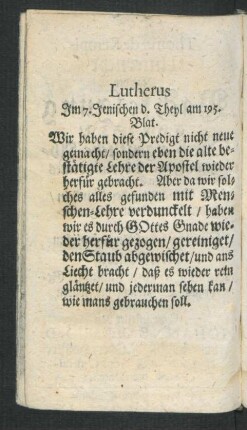 Lutherus
Im 7. Jenischen d. Theyl am 195.
Blat.
Wir haben diese Predigt nicht neue
gemacht/ sondern eben die alte be-
stätigte Lehre der Apostel wieder
herfür gebracht. Aber da wir sol-
ches alles gefunden mit Men-
schen-Lehre verdunckelt / haben
wir es durch GOttes Gnade wie-
der herfür gezogen/ gereiniget/
den Staub abgewischet/und ans
Liecht bracht / daß es wieder rein
gläntzet/ und jederman sehen kan /
wie mans gebrauchen soll.